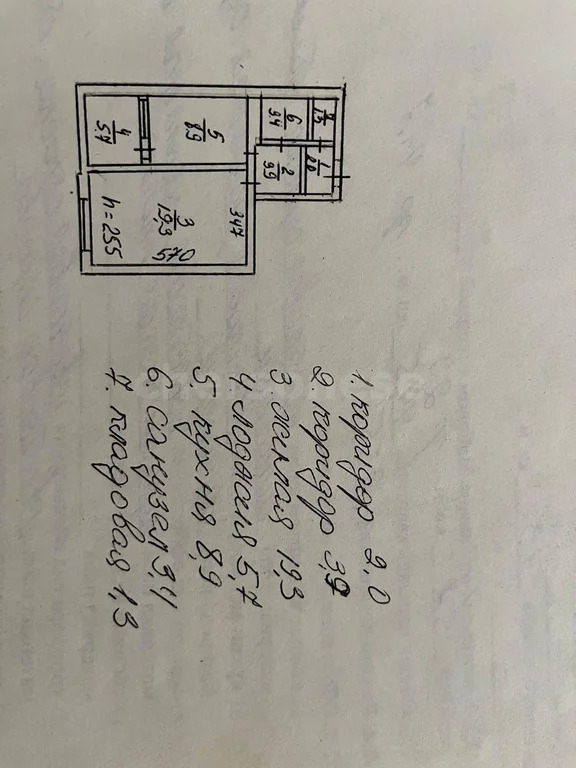 4
5.7
5
8.9
6
3.4
7
1.3
3
19,3
2
3.9
1
2.0
h = 255
570
347
1. коридор 2,0
2. коридор 3,9
3. жилая 19,3
4. лоджия 5,7
5. кухня 8,9
6. санузел 3,4
7. кладовая 1,3